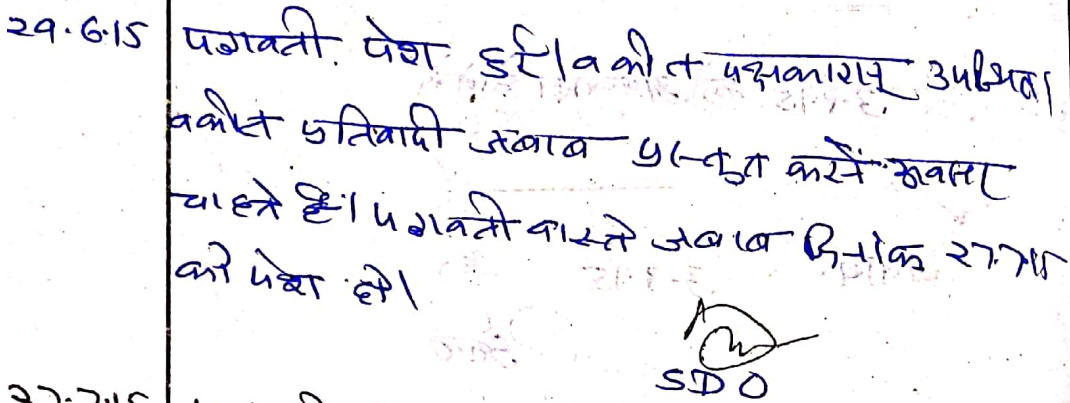 29.6.15 पत्रावली पेश हुई। वकील पक्षकारान् उपस्थित।
वकील प्रतिवादी जवाब प्रस्तुत करनें अवसर
चाहते है। पत्रावली वास्ते जवाब दिनांक 27.7.15
को पेश हो।
SDO
27.7.15